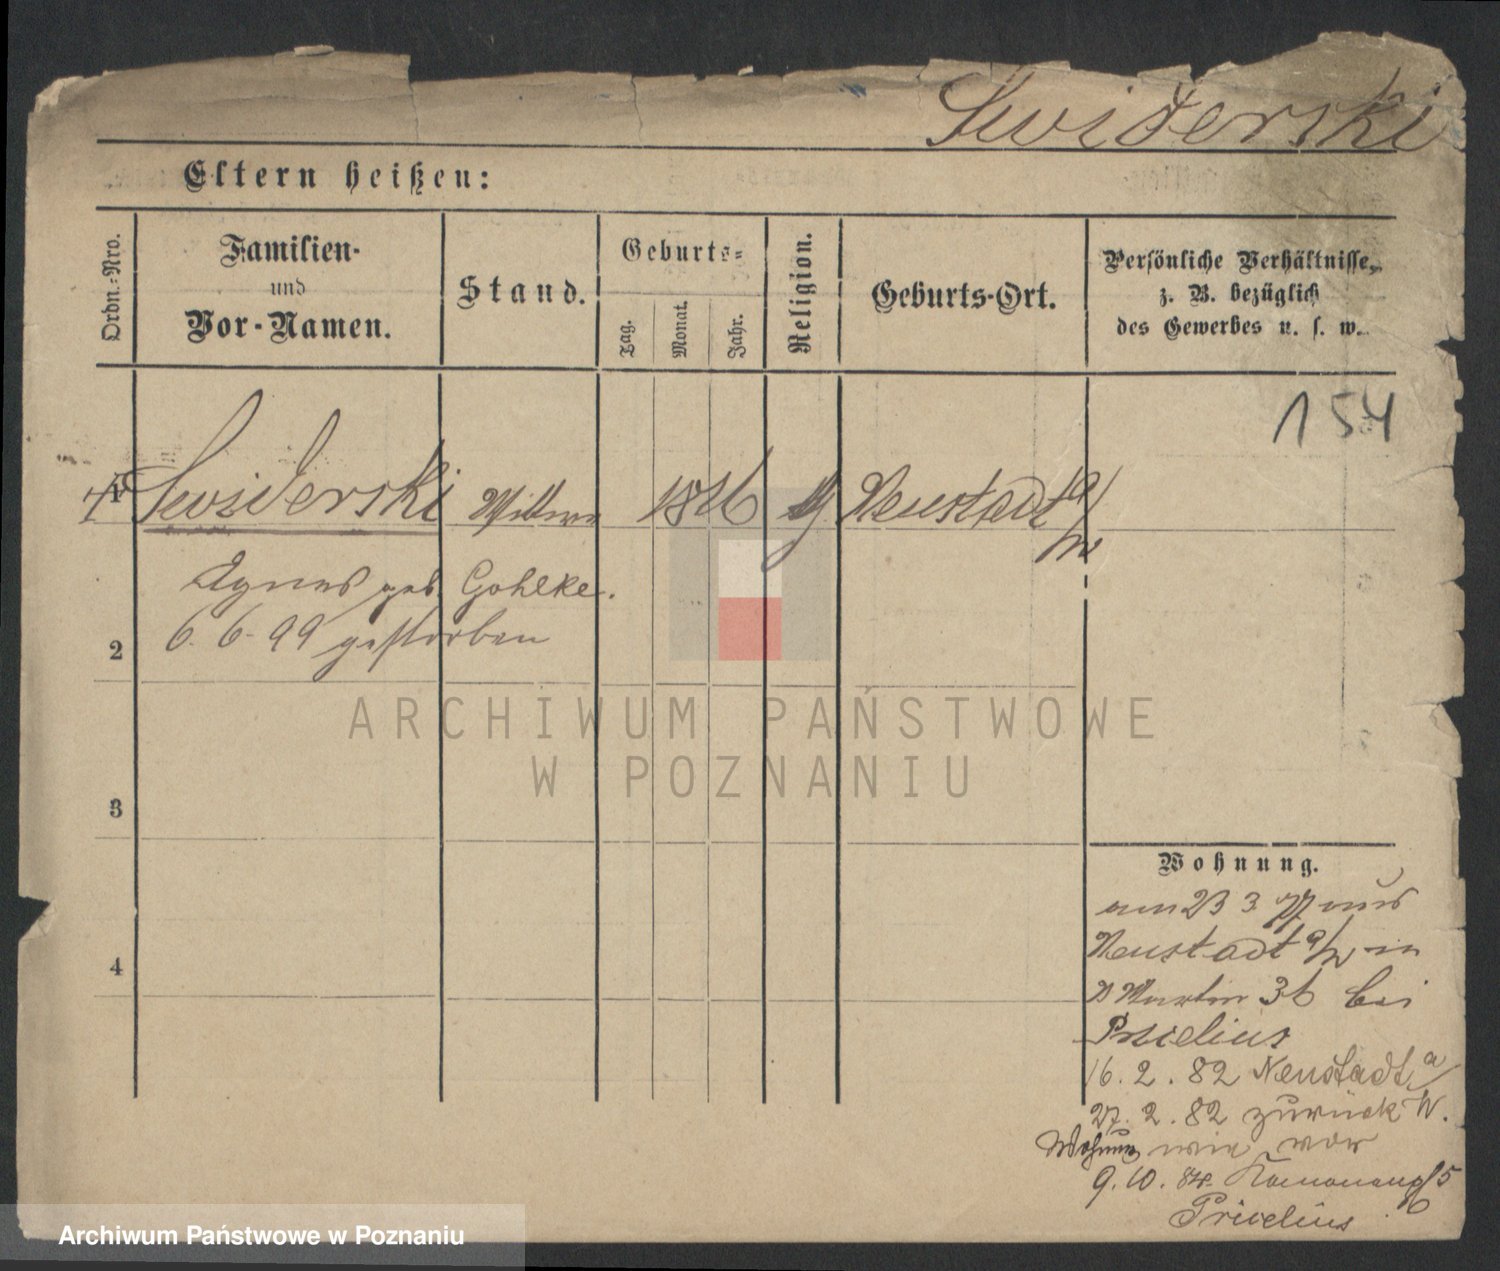 Swiderski
Eltern heißen:
Ordn.-Nro.
Familien-
und
Vor-Namen.
Stand.
Geburts-
Tag.
Monat.
Jahr.
Religion.
Geburts-Ort.
Persönliche Verhältnisse,
z. B. bezüglich
des Gewerbes u. s. w.
154
1 Swiderski Wittwe 1816 Neustadt a/
W
Agnes geb. Gohlke.
6. 6. 99 gestorben
2
3
4
Wohnung.
am 23 3 77 aus
Neustadt a/W in
Martin 36 bei
16. 2. 82 Neustadt a/
27. 2. 82 zurück W.
Wohnung wie vor
9. 10. 84.
ARCHIWUM PAŃSTWOWE
W POZNANIU
Archiwum Państwowe w Poznaniu